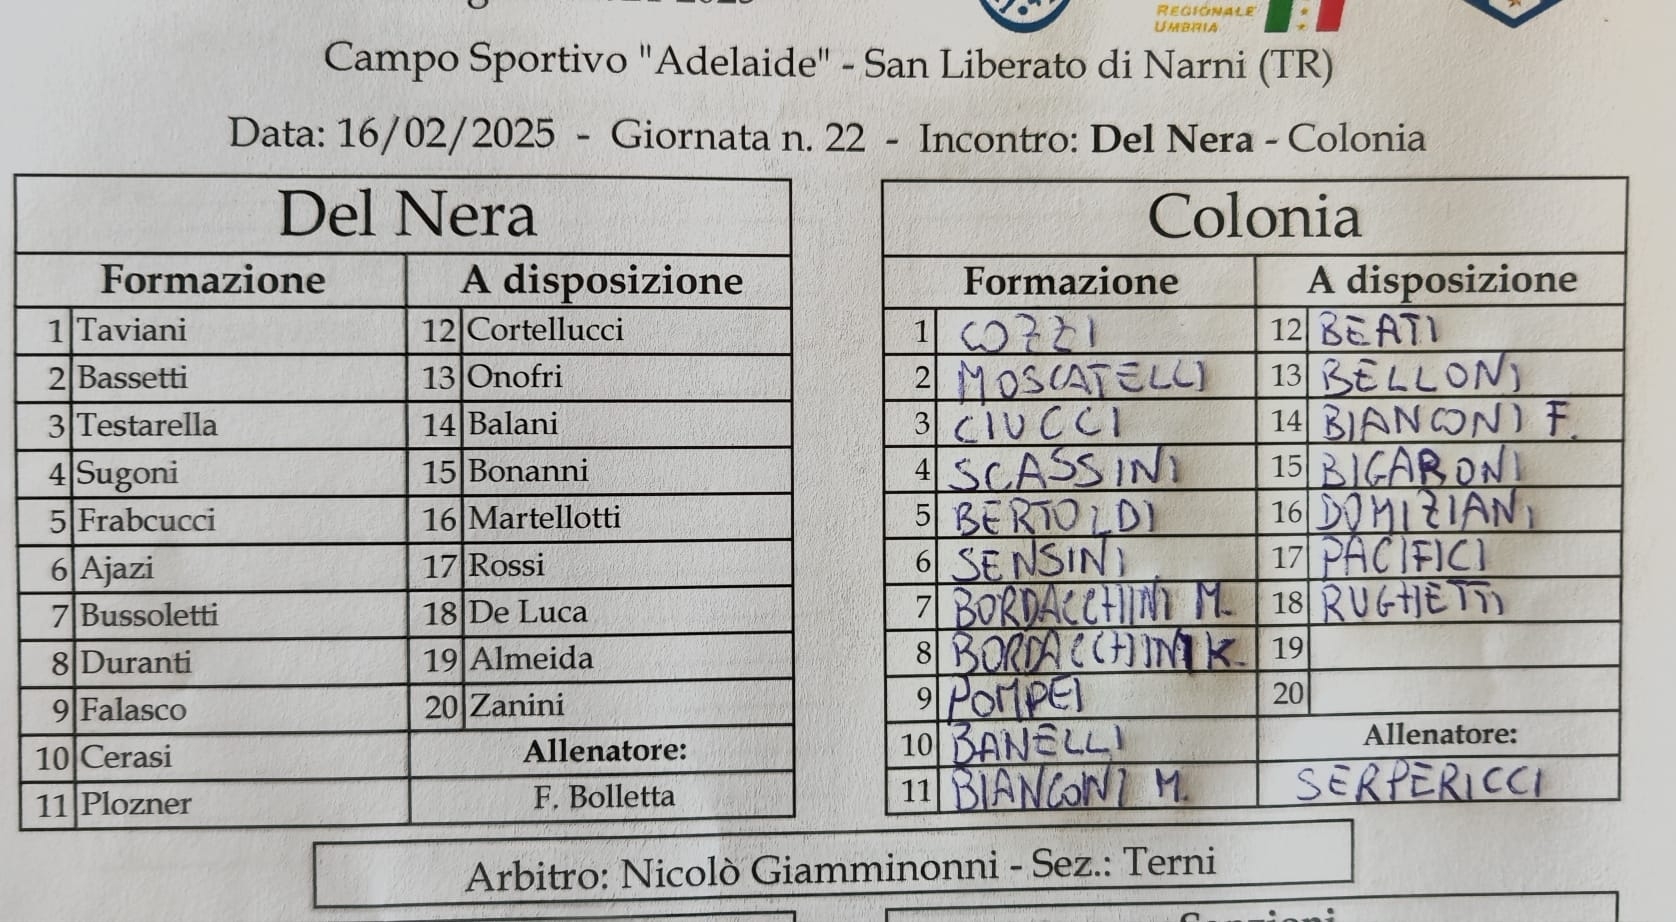 REGIONALE
UMBRIA
Campo Sportivo "Adelaide" - San Liberato di Narni (TR)
Data: 16/02/2025 - Giornata n. 22 - Incontro: Del Nera - Colonia
Del Nera
Formazione A disposizione
1 Taviani 12 Cortellucci
2 Bassetti 13 Onofri
3 Testarella 14 Balani
4 Sugoni 15 Bonanni
5 Frabcucci 16 Martellotti
6 Ajazi 17 Rossi
7 Bussoletti 18 De Luca
8 Duranti 19 Almeida
9 Falasco 20 Zanini
10 Cerasi Allenatore:
11 Plozner F. Bolletta
Colonia
Formazione A disposizione
1 COZZI 12 BEATI
2 MOSCATELLI 13 BELLONI
3 CIUCCI 14 BIANCONI F.
4 SCASSINI 15 BIGARONI
5 BERTOLDI 16 DOMIZIANI
6 SENSINI 17 PACIFICI
7 BORDACCHINI M. 18 RUGHETTI
8 BORDACCHINI K. 19
9 POMPEI 20
10 BANELLI Allenatore:
11 BIANCONI M. SERPERICCI
Arbitro: Nicolò Giamminonni - Sez.: Terni